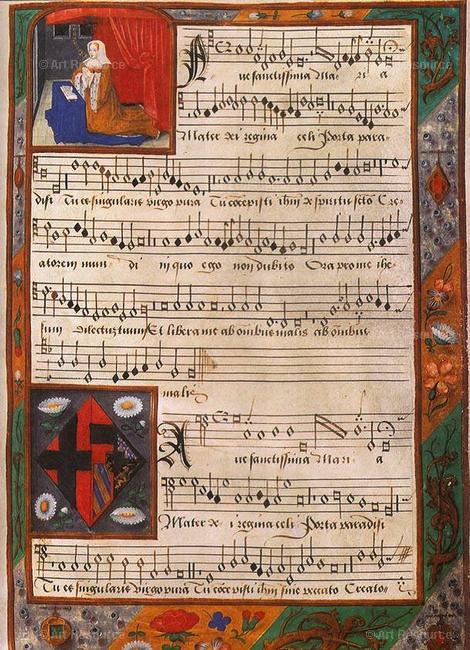 © Art Resource
© Art Resource
Ave sanctissima Mari a
Mater dei regina celi Porta para
disi Tu es singularis virgo pura Tu concepisti ihm de spiritu scto Cre
atorem mun di in quo ego non dubito Ora pro me ihe
sum dilectum tuum Et libera me ab omibus malis ab omibus
malis
Ave sanctissima Mari a
Mater de i regina celi Porta paradisi
Tu es singularis virgo pura Tu concepisti ihm sine peccato Creato
© Art Resource
© Art Resource